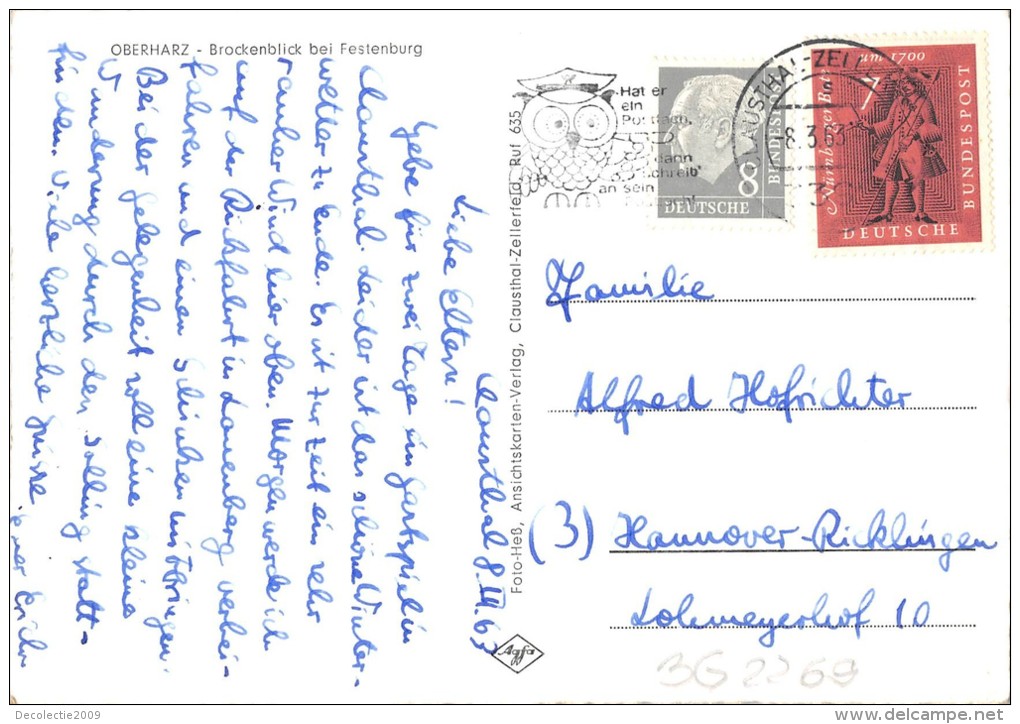 OBERHARZ - Brockenblick bei Festenburg
Clausthal 8.III.63
Liebe Eltern!
Gebe für zwei Tage ein Gastspiel in
Clausthal. Leider ist das schöne Winter-
wetter zu Ende. Es ist zur Zeit ein sehr
rauher Wind hier oben. Morgen werde ich
auf der Rückfahrt in Lauenberg vorbei-
fahren und einen Schinken mitbringen.
Bei der Gelegenheit soll eine kleine
Wanderung durch den Solling statt-
finden. Viele herzliche Grüsse
Euer Erich
Foto-Heß, Ansichtskarten-Verlag, Clausthal-Zellerfeld, Ruf 635
Agfa
Hat er
ein
Postfach,
dann
schreib'
an sein
8
DEUTSCHE
BUNDESPOST
CLAUSTHAL-ZELL
-8.3.63
um 1700
7
Nürnberger Bote
DEUTSCHE
BUNDESPOST
Familie
Alfred Hofrichter
(3) Hannover-Ricklingen
Lohmeyerhof 10
BG 2269
Decolectie2009
delcampe.net